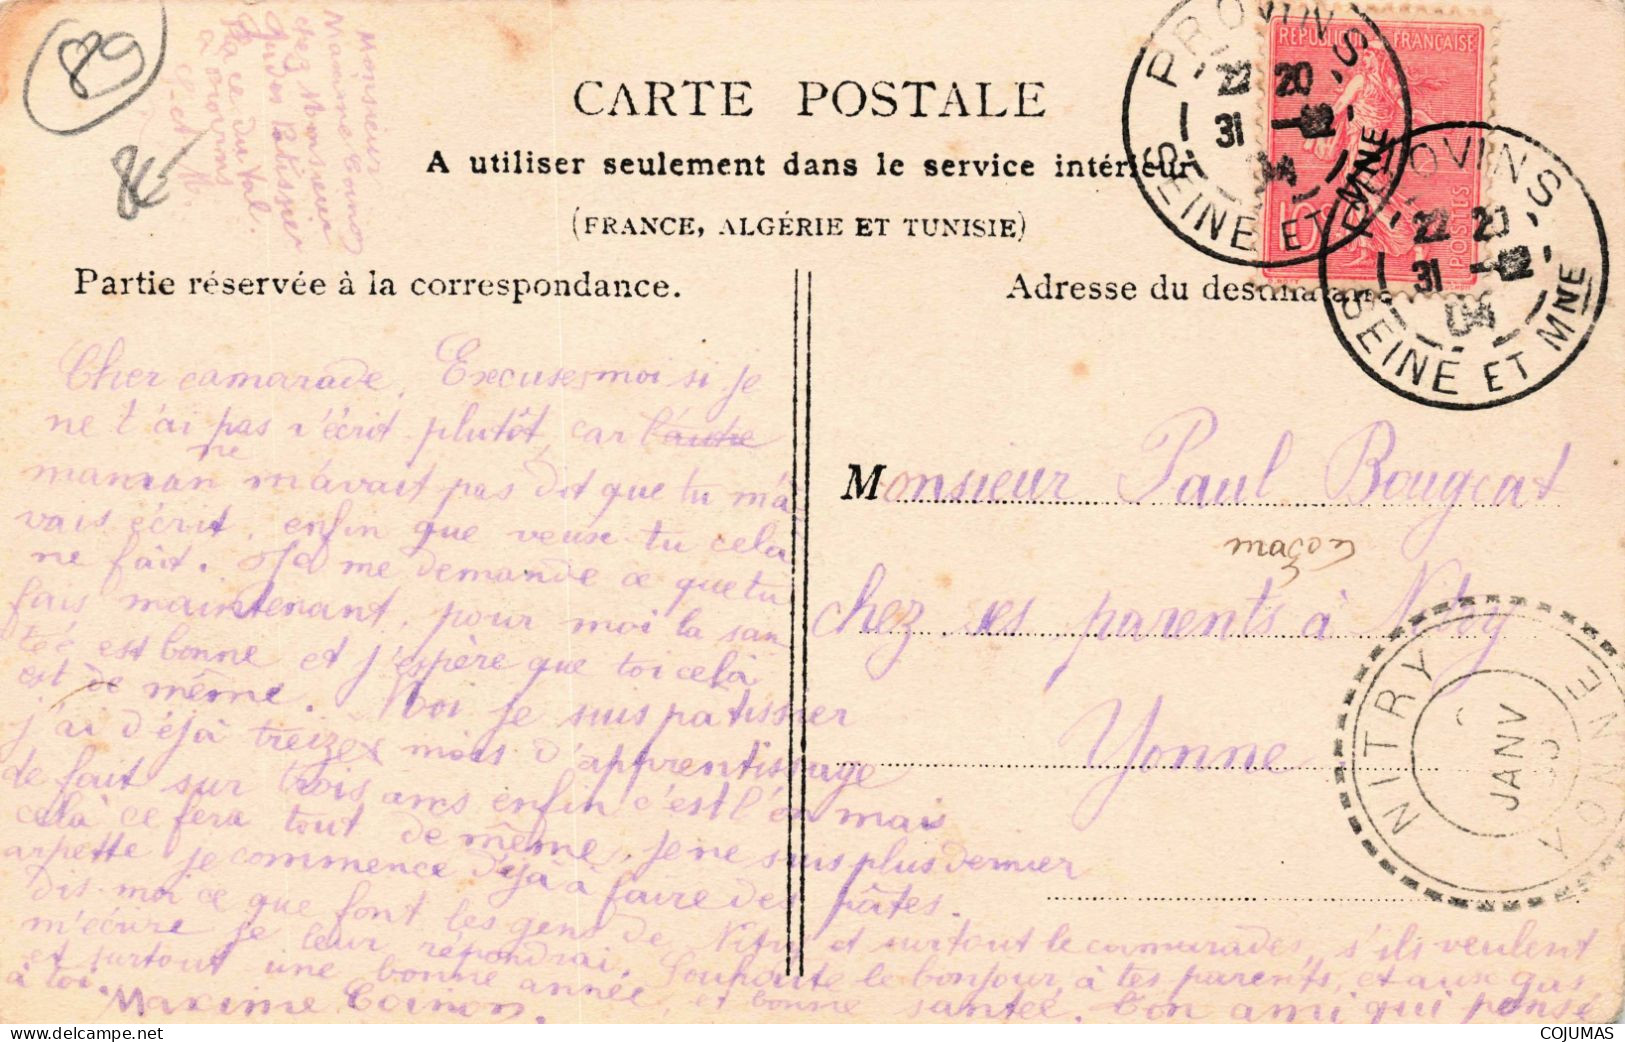 89
8€
Monsieur
Maxime Coinon
chez Monsieur
Guidon Patissier
Place du Val.
à Provins
S.-et-M.
CARTE POSTALE
A utiliser seulement dans le service intérieur
(FRANCE, ALGÉRIE ET TUNISIE)
Partie réservée à la correspondance.
Adresse du destinataire
RÉPUBLIQUE FRANÇAISE
POSTES
10
PROVINS
22 20
31 -12
04
SEINE ET MNE
PROVINS
22 20
31 -12
04
SEINE ET MNE
Cher camarade, Excuses moi si je
ne t'ai pas r'écrit plutôt, car l'autre
maman ne m'avait pas dit que tu m'a
vais écrit, enfin que veuse tu cela
ne fait. Ja me demande ce que tu
fais maintenant, pour moi la san
teé est bonne et j'espère que toi celà
est de même. Moi je suis patissier
j'ai déjà treize mois d'apprentissage
de fait sur trois ans enfin c'est l'on mais
celà ce fera tout de même, je ne suis plus dernier
arpette je commence déjà à faire des pâtes.
Dis-moi ce que font les gens de Nitry et surtout le camarades, s'ils veulent
m'écrire je leur répondrai. Souhaite le bonjour à tes parents, et aux gas
et surtout une bonne année, et bonne santeé. Ton ami qui pense
à toi. Maxime Coinon.
Monsieur Paul Bougcat
maçon
chez ses parents à Nitry
Yonne
NITRY
JANV
05
YONNE
COJUMAS